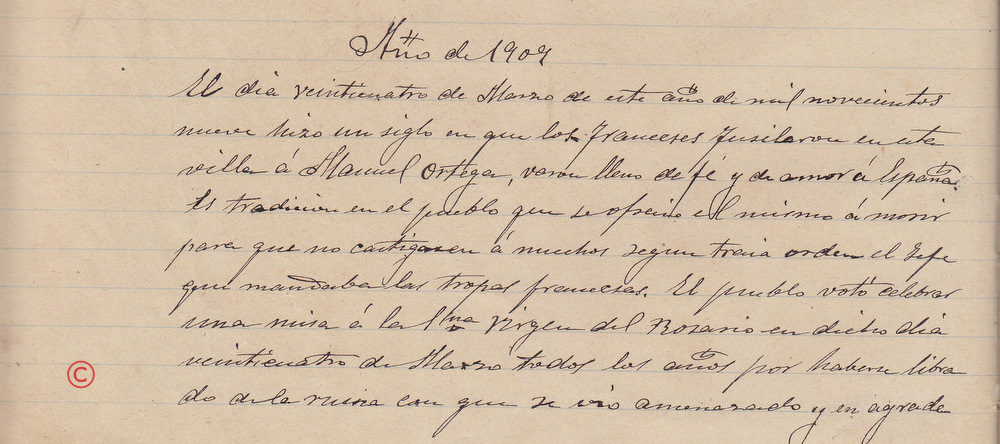 Año de 1909
El dia veinticuatro de Marzo de este año de mil novecientos
nueve hizo un siglo en que los Franceses fusilaron en esta
villa á Manuel Ortega, varon lleno de fé y de amor á España.
Es tradicion en el pueblo que se ofrecio el mismo á morir
para que no castigasen á muchos segun traia orden el Gefe
que mandaba las tropas francesas. El pueblo votó celebrar
una misa á la Sma Virgen del Rosario en dicho dia
veinticuatro de Marzo todos los años por haberse libra
do de la ruina con que se vio amenazado y en agrade
©